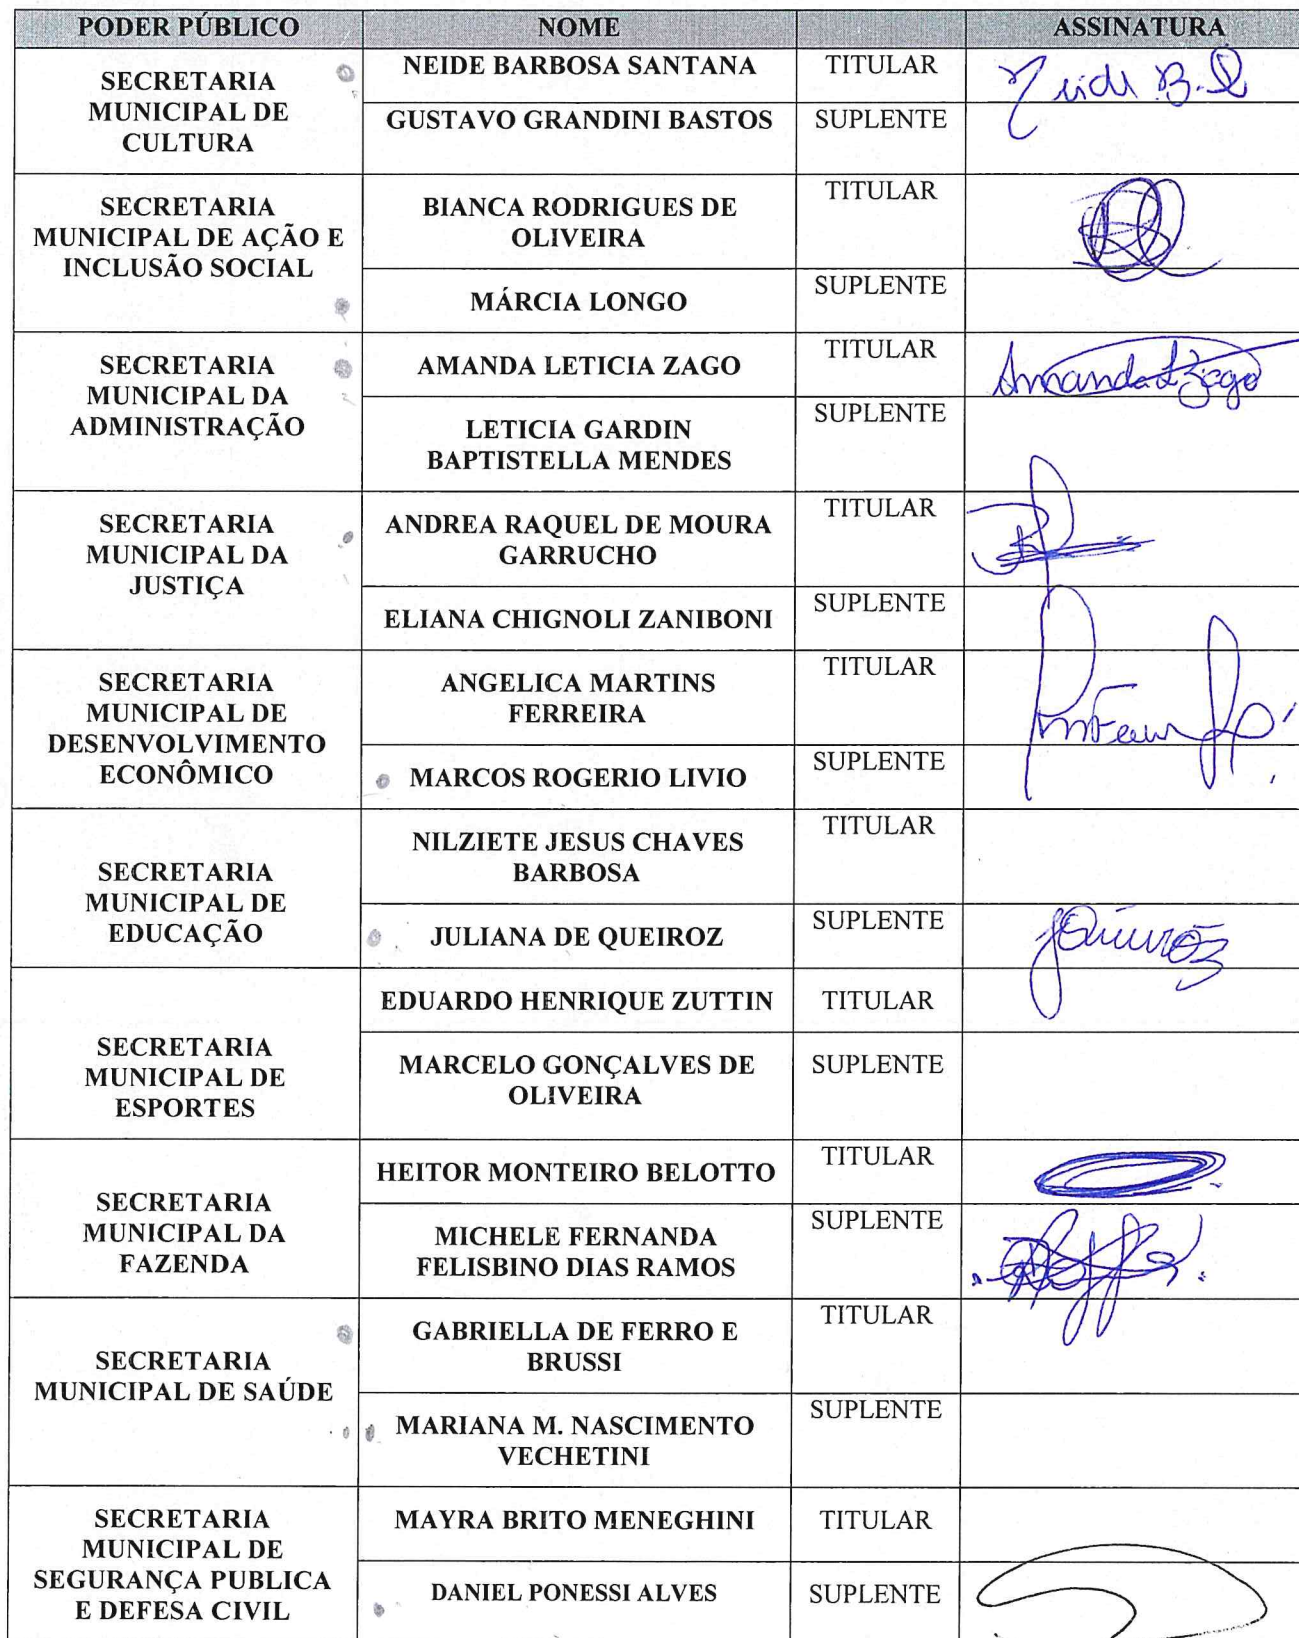 PODER PÚBLICO NOME ASSINATURA
SECRETARIA
MUNICIPAL DE
CULTURA
NEIDE BARBOSA SANTANA TITULAR Neide B. S
GUSTAVO GRANDINI BASTOS SUPLENTE
SECRETARIA
MUNICIPAL DE AÇÃO E
INCLUSÃO SOCIAL
BIANCA RODRIGUES DE
OLIVEIRA
TITULAR
MÁRCIA LONGO SUPLENTE
SECRETARIA
MUNICIPAL DA
ADMINISTRAÇÃO
AMANDA LETICIA ZAGO TITULAR Amanda L Zago
LETICIA GARDIN
BAPTISTELLA MENDES
SUPLENTE
SECRETARIA
MUNICIPAL DA
JUSTIÇA
ANDREA RAQUEL DE MOURA
GARRUCHO
TITULAR
ELIANA CHIGNOLI ZANIBONI SUPLENTE
SECRETARIA
MUNICIPAL DE
DESENVOLVIMENTO
ECONÔMICO
ANGELICA MARTINS
FERREIRA
TITULAR
MARCOS ROGERIO LIVIO SUPLENTE
SECRETARIA
MUNICIPAL DE
EDUCAÇÃO
NILZIETE JESUS CHAVES
BARBOSA
TITULAR
JULIANA DE QUEIROZ SUPLENTE JQueiroz
SECRETARIA
MUNICIPAL DE
ESPORTES
EDUARDO HENRIQUE ZUTTIN TITULAR
MARCELO GONÇALVES DE
OLIVEIRA
SUPLENTE
SECRETARIA
MUNICIPAL DA
FAZENDA
HEITOR MONTEIRO BELOTTO TITULAR
MICHELE FERNANDA
FELISBINO DIAS RAMOS
SUPLENTE
SECRETARIA
MUNICIPAL DE SAÚDE
GABRIELLA DE FERRO E
BRUSSI
TITULAR
MARIANA M. NASCIMENTO
VECHETINI
SUPLENTE
SECRETARIA
MUNICIPAL DE
SEGURANÇA PUBLICA
E DEFESA CIVIL
MAYRA BRITO MENEGHINI TITULAR
DANIEL PONESSI ALVES SUPLENTE